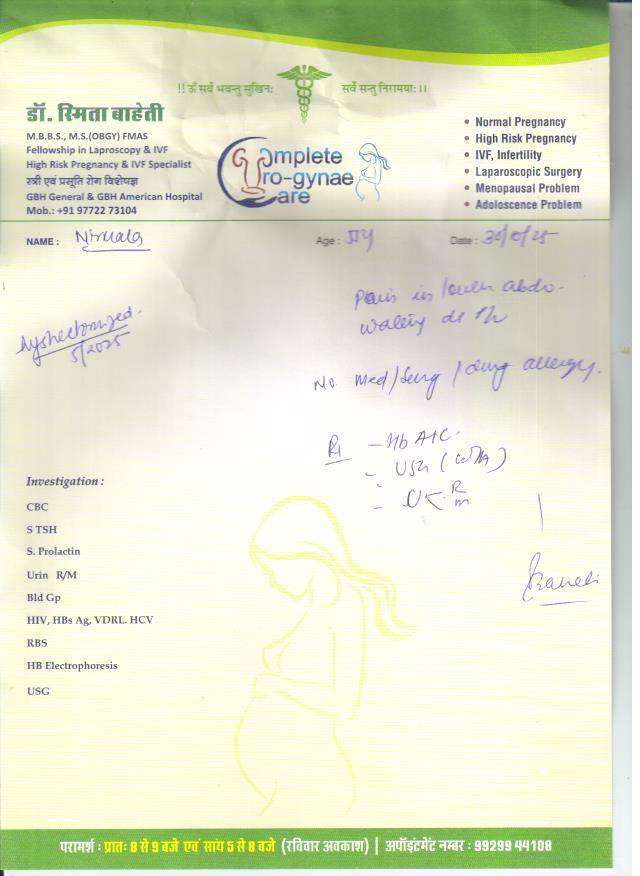 !! ॐ सर्वे भवन्तु सुखिनः सर्वे सन्तु निरामयाः ।।
डॉ. स्मिता बाहेती
M.B.B.S., M.S.(OBGY) FMAS
Fellowship in Laproscopy & IVF
High Risk Pregnancy & IVF Specialist
स्त्री एवं प्रसूति रोग विशेषज्ञ
GBH General & GBH American Hospital
Mob.: +91 97722 73104
Complete
Uro-gynae
Care
• Normal Pregnancy
• High Risk Pregnancy
• IVF, Infertility
• Laparoscopic Surgery
• Menopausal Problem
• Adoloscence Problem
NAME : Nirmala Age : Date :
Pain in lower abdo.
5/2025
No Med/Surg / drug allergy.
- Hb A1C.
- USG
- R/M
Investigation :
CBC
S TSH
S. Prolactin
Urin R/M
Bld Gp
HIV, HBs Ag, VDRL. HCV
RBS
HB Electrophoresis
USG
परामर्श : प्रातः 8 से 9 बजे एवं सांय 5 से 8 बजे (रविवार अवकाश) | अपॉइंटमेंट नम्बर : 99299 44108